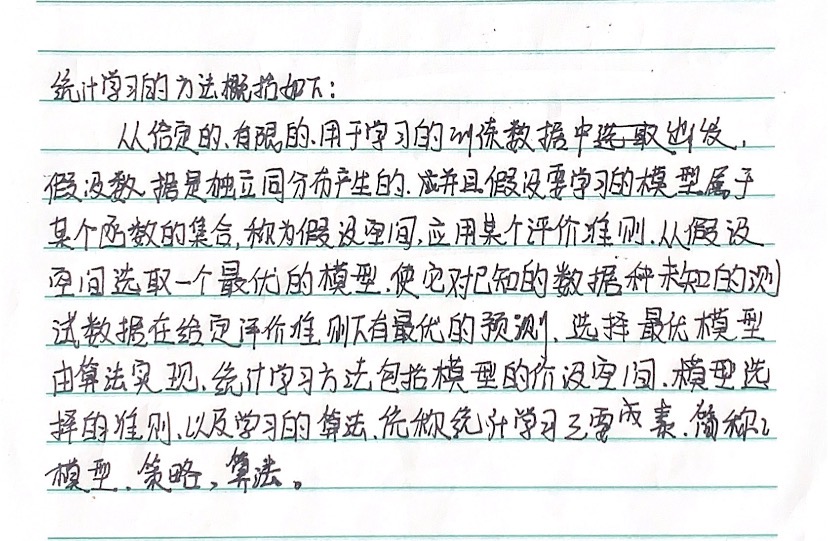 统计学习的方法概括如下：
从给定的、有限的、用于学习的训练数据中出发，
假设数据是独立同分布产生的、并且假设要学习的模型属于
某个函数的集合，称为假设空间，应用某个评价准则、从假设
空间选取一个最优的模型、使它对已知的数据种未知的测
试数据在给定评价准则下有最优的预测、选择最优模型
由算法实现、统计学习方法包括模型的价设空间、模型选
择的准则、以及学习的算法、统称统计学习三要素、简称：
模型、策略、算法。